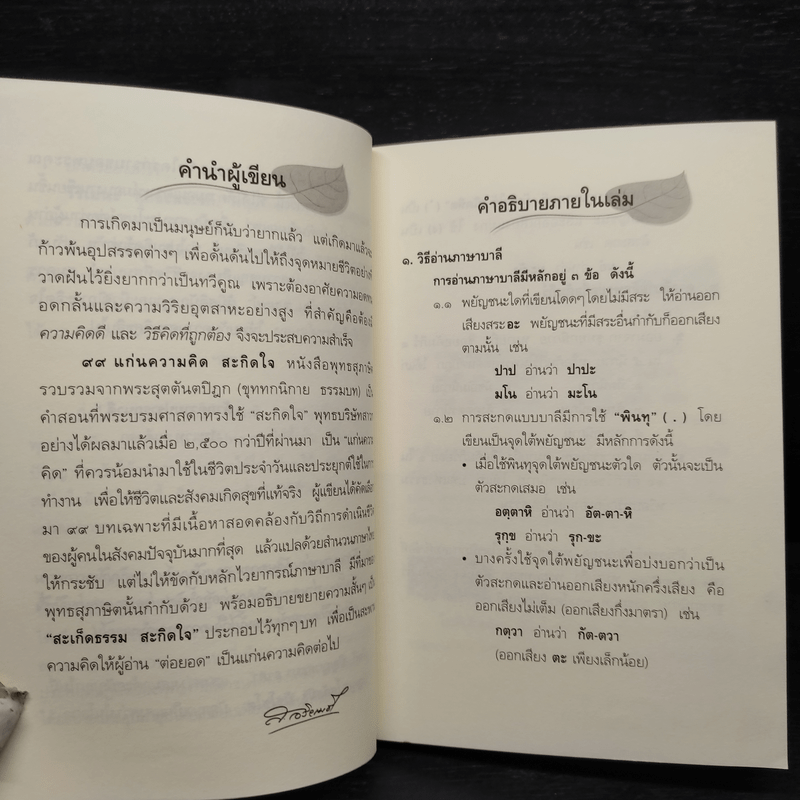 คำนำผู้เขียน
การเกิดมาเป็นมนุษย์ก็นับว่ายากแล้ว แต่เกิดมาแล้วจะ
ก้าวพ้นอุปสรรคต่างๆ เพื่อดั้นด้นไปให้ถึงจุดหมายชีวิตอย่างที่
วาดฝันไว้ยิ่งยากกว่าเป็นทวีคูณ เพราะต้องอาศัยความอดทน
อดกลั้นและความวิริยอุตสาหะอย่างสูง ที่สำคัญคือต้องมี
ความคิดดี และ วิธีคิดที่ถูกต้อง จึงจะประสบความสำเร็จ
๙๙ แก่นความคิด สะกิดใจ หนังสือพุทธสุภาษิต
รวบรวมจากพระสุตตันตปิฎก (ขุททกนิกาย ธรรมบท) เป็น
คำสอนที่พระบรมศาสดาทรงใช้ “สะกิดใจ” พุทธบริษัทสาวก
อย่างได้ผลมาแล้วเมื่อ ๒,๕๐๐ กว่าปีที่ผ่านมา เป็น “แก่นความ
คิด” ที่ควรน้อมนำมาใช้ในชีวิตประจำวันและประยุกต์ใช้ในการ
ทำงาน เพื่อให้ชีวิตและสังคมเกิดสุขที่แท้จริง ผู้เขียนได้คัดเลือก
มา ๙๙ บทเฉพาะที่มีเนื้อหาสอดคล้องกับวิถีการดำเนินชีวิต
ของผู้คนในสังคมปัจจุบันมากที่สุด แล้วแปลด้วยสำนวนภาษาไทย
ให้กระชับ แต่ไม่ให้ขัดกับหลักไวยากรณ์ภาษาบาลี มีที่มาของ
พุทธสุภาษิตนั้นกำกับด้วย พร้อมอธิบายขยายความสั้นๆ เป็น
“สะเก็ดธรรม สะกิดใจ” ประกอบไว้ทุกๆ บท เพื่อเป็นสะพาน
ความคิดให้ผู้อ่าน “ต่อยอด” เป็นแก่นความคิดต่อไป
คำอธิบายภายในเล่ม
๑. วิธีอ่านภาษาบาลี
การอ่านภาษาบาลีมีหลักอยู่ ๓ ข้อ ดังนี้
๑.๑ พยัญชนะใดที่เขียนโดดๆ โดยไม่มีสระ ให้อ่านออก
เสียงสระอะ พยัญชนะที่มีสระอื่นกำกับก็ออกเสียง
ตามนั้น เช่น
ปาป อ่านว่า ปาปะ
มโน อ่านว่า มะโน
๑.๒ การสะกดแบบบาลีมีการใช้ “พินทุ” ( . ) โดย
เขียนเป็นจุดใต้พยัญชนะ มีหลักการดังนี้
• เมื่อใช้พินทุจุดใต้พยัญชนะตัวใด ตัวนั้นจะเป็น
ตัวสะกดเสมอ เช่น
อตฺตาหิ อ่านว่า อัต-ตา-หิ
รุกฺข อ่านว่า รุก-ขะ
• บางครั้งใช้จุดใต้พยัญชนะเพื่อบ่งบอกว่าเป็น
ตัวสะกดและอ่านออกเสียงหนักครึ่งเสียง คือ
ออกเสียงไม่เต็ม (ออกเสียงกึ่งมาตรา) เช่น
กตฺวา อ่านว่า กัต-ตวา
(ออกเสียง ตะ เพียงเล็กน้อย)